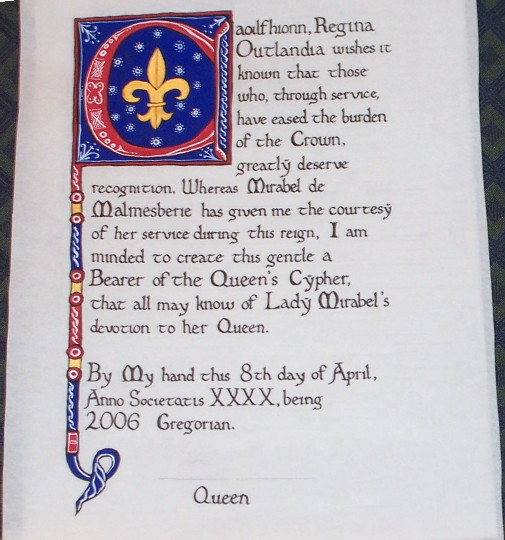 Caolfhionn, Regina
Outlandia wishes it
known that those
who, through service,
have eased the burden
of the Crown,
greatlÿ deserve
recognition. Whereas Mirabel de
Malmesberie has given me the courtesÿ
of her service during this reign, I am
minded to create this gentle a
Bearer of the Queen's Cÿpher,
that all may know of Ladÿ Mirabel's
devotion to her Queen.
By My hand this 8th day of April,
Anno Societatis XXXX, being
2006 Gregorian.
Queen